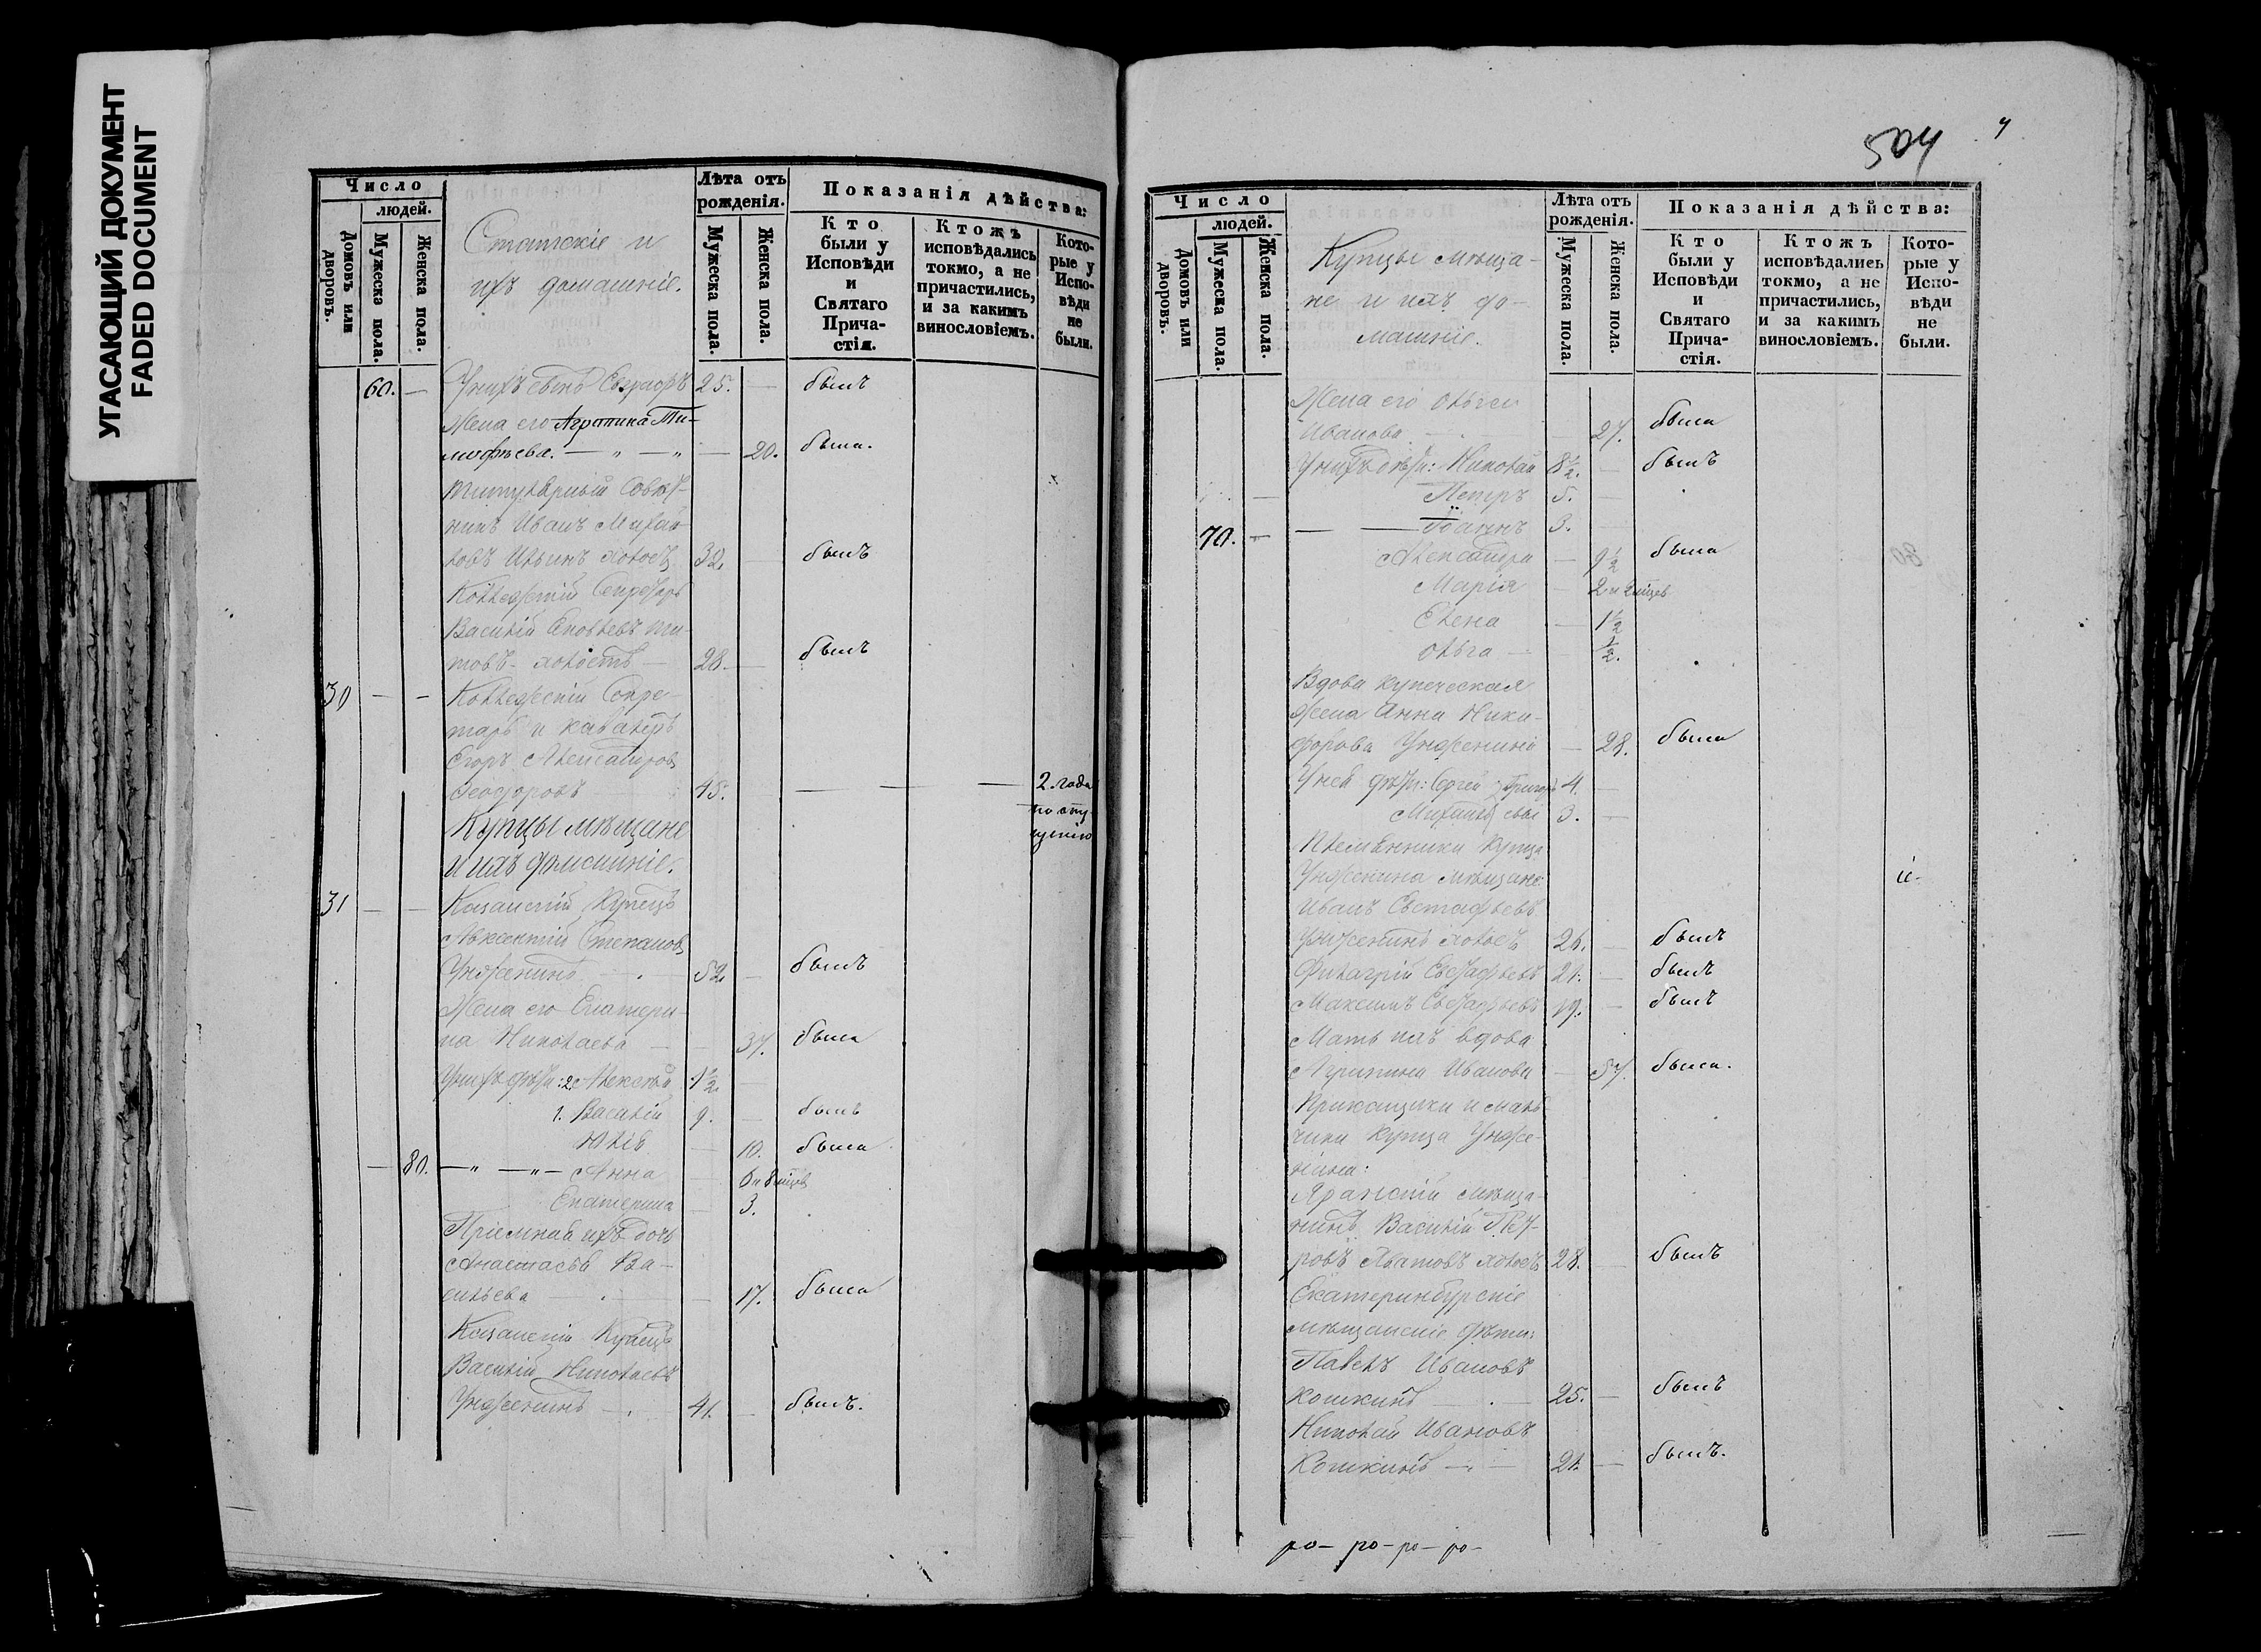 УГАСАЮЩИЙ ДОКУМЕНТ
FADED DOCUMENT
Число
людей.
Домовъ или дворовъ.
Мужеска пола.
Женска пола.
Статскіе и
ихъ домашніе.
Лѣта отъ рожденія.
Мужеска пола.
Женска пола.
Показанія дѣйства:
Кто были у Исповѣди и Святаго Прича- стія.
Ктожъ исповѣдались токмо, а не причастились, и за какимъ винословіемъ.
Кото- рые у Испо- вѣди не были.
60. — У нихъ сынъ Евграфъ 25. — былъ
Жена его Агрипина Ти-
мофѣева. — „ — „ — 20. была.
Титулярный Совѣт-
никъ Иванъ Михай-
ловъ Ильинъ холостъ 32. — былъ
Коллежскій Секретарь
Василій Яковлевъ Ти-
товъ - холостъ — 28. — былъ
30 — — Коллежскій Секре-
тарь и кавалеръ
Егоръ Александровъ
Ѳеодоровъ 45. — — — 2 года
по опу-
щенію
Купцы мѣщане
и ихъ домашніе.
31 — — Казанскій Купецъ
Авксентій Степановъ
Унженинъ 52 — былъ
Жена его Екатери-
на Николаева — — 37. была
У нихъ дѣти: 2. Алексѣй 1½ —
1. Василій 9. — былъ
Юлія — 10. была
— 80. — „ — „ — Анна — 6 и 8 мѣцѣв
Екатерина — 3.
Пріемная ихъ дочь
Анастасья Ва-
сильева — . — — 17. была
Казанскій Купецъ
Василій Николаевъ
Унженинъ — . 41. — былъ.
504
Число
людей.
Домовъ или дворовъ.
Мужеска пола.
Женска пола.
Купцы мѣща-
не и ихъ до-
машніе.
Лѣта отъ рожденія.
Мужеска пола.
Женска пола.
Показанія дѣйства:
Кто были у Исповѣди и Святаго Прича- стія.
Ктожъ исповѣдались токмо, а не причастились, и за какимъ винословіемъ.
Кото- рые у Испо- вѣди не были.
Жена его Ольга
Иванова — — 27. была
У нихъ дѣти: Николай 8½. — былъ
Петръ 5. —
70. — — Іоаннъ 3. —
Александра — 9½ была
Марія — 2 и 2 мѣцѣв
Елена — 1½
Ольга — ½.
Вдова купеческая
жена Анна Ники-
форова Унженина — 28. была
У ней дѣти: Сергей Григорь 4. —
Михаилъ евы 3. —
Племянники Купца
Унженина мѣщане
Иванъ Евстафьевъ
Унженинъ холостъ 26. — былъ
Филагрій Евстафьевъ 21. — былъ
Максимъ Евстафьевъ 19. — былъ
Мать ихъ вдова
Агрипина Иванова — 57. была.
Прикащики и маль-
чики Купца Унже-
нина:
Яранскій мѣща-
нинъ Василій Пет-
ровъ холостъ 28. — былъ
Екатеринбургскіе
мѣщанскіе дѣти:
Павелъ Ивановъ
Кошкинъ — . — 25. — былъ
Николай Ивановъ
Кошкинъ — „ — 21. — былъ.
ро- ро- ро- ро-